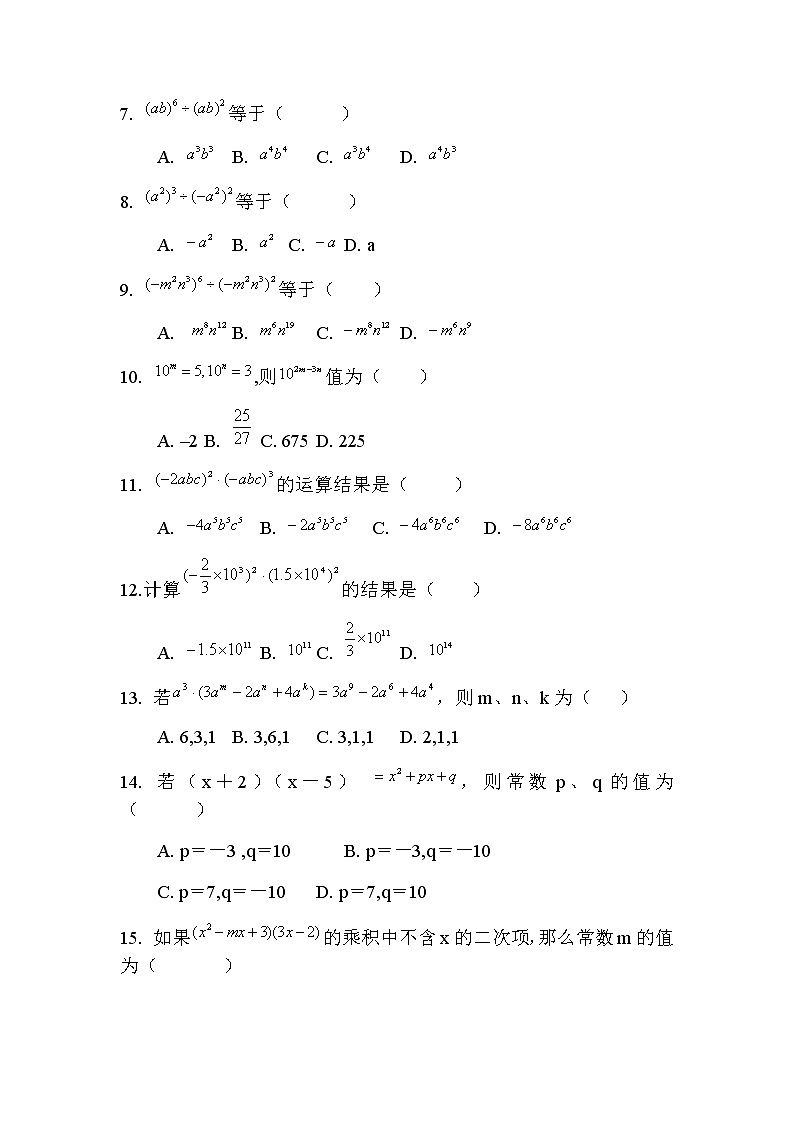 7. (ab)⁶÷(ab)²等于（ ）
A. a³b³ B. a⁴b⁴ C. a³b⁴ D. a⁴b³
8. (a²)³÷(−a²)²等于（ ）
A. −a² B. a² C. −a D. a
9. (−m²n³)⁶÷(−m²n³)²等于（ ）
A. m⁸n¹² B. m⁶n¹⁹ C. −m⁸n¹² D. −m⁶n⁹
10. 10ᵐ=5,10ⁿ=3,则10²ᵐ⁻³ⁿ值为（ ）
A. –2 B. 25/27 C. 675 D. 225
11. (−2abc)²·(−abc)³的运算结果是（ ）
A. −4a⁵b⁵c⁵ B. −2a⁵b⁵c⁵ C. −4a⁶b⁶c⁶ D. −8a⁶b⁶c⁶
12.计算(−2/3×10³)²·(1.5×10⁴)²的结果是（ ）
A. −1.5×10¹¹ B. 10¹¹ C. 2/3×10¹¹ D. 10¹⁴
13. 若a³·(3aᵐ−2aⁿ+4aᵏ)=3a⁹−2a⁶+4a⁴，则m、n、k为（ ）
A. 6,3,1 B. 3,6,1 C. 3,1,1 D. 2,1,1
14. 若（x＋2）（x－5） =x²+px+q，则常数p、q的值为
（ ）
A. p＝－3 ,q＝10 B. p＝－3,q＝－10
C. p＝7,q＝－10 D. p＝7,q＝10
15. 如果(x²−mx+3)(3x−2)的乘积中不含x的二次项，那么常数m的值
为（ ）